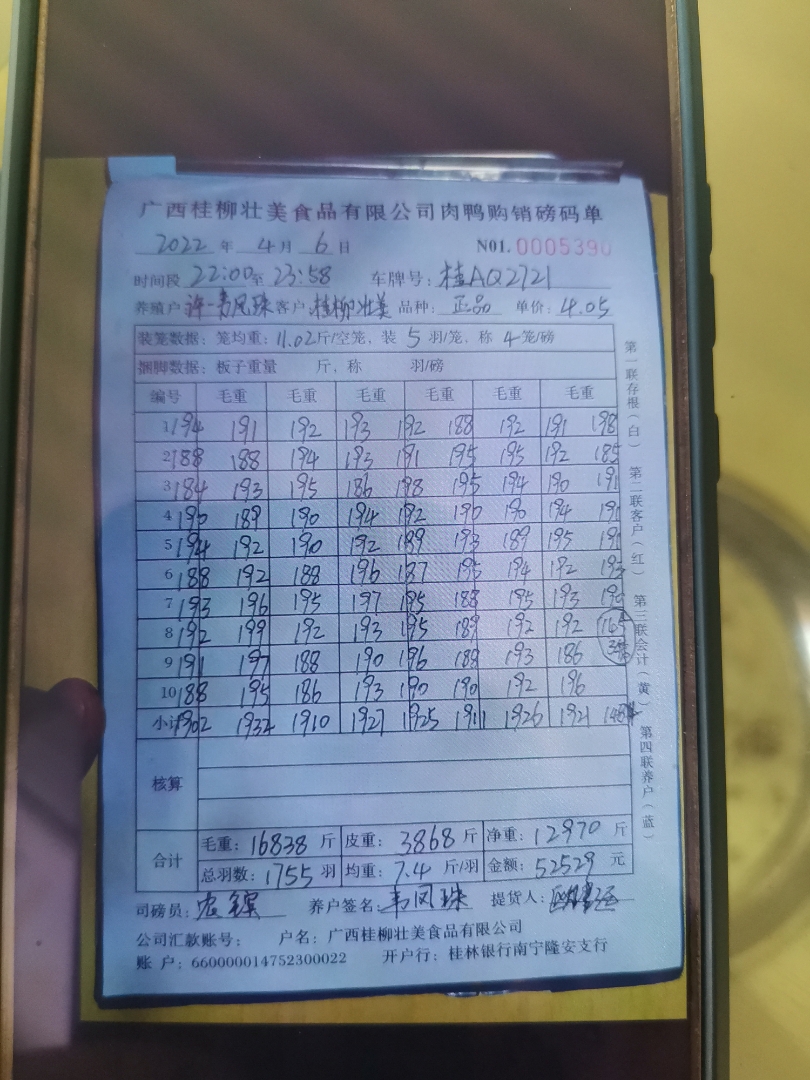 广西桂柳壮美食品有限公司肉鸭购销磅码单
2022 年 4 月 6 日 N01. 0005390
时间段 22:00 至 23:58 车牌号: 桂AQ2721
养殖户 许-韦凤珠 客户: 桂柳壮美 品种: 正品 单价: 4.05
装笼数据: 笼均重: 11.02 斤/空笼, 装 5 羽/笼, 称 4 笼/磅
捆脚数据: 板子重量 斤, 称 羽/磅
编号 毛重 毛重 毛重 毛重 毛重 毛重
1 194 191 192 193 192 188 192 191 198
2 188 188 194 193 191 195 195 192 185
3 184 193 195 186 198 195 194 190 191
4 190 189 190 194 192 190 190 194 191
5 194 192 190 192 189 193 189 195 191
6 188 192 188 196 187 195 194 192 193
7 193 196 195 197 195 188 195 193
8 192 199 192 193 195 189 192 192
9 191 197 188 190 196 188 193 186
10 188 195 186 193 190 190 192 196
小计 1902 1932 1910 1927 1925 1911 1926 1921
核算
合计 毛重: 16838 斤 皮重: 3868 斤 净重: 12970 斤
总羽数: 1755 羽 均重: 7.4 斤/羽 金额: 52529 元
司磅员: 养户签名: 韦凤珠 提货人:
公司汇款账号: 户名: 广西桂柳壮美食品有限公司
账 户: 660000014752300022 开户行: 桂林银行南宁隆安支行
第一联存根(白) 第二联客户(红) 第三联会计(黄) 第四联养户(蓝)